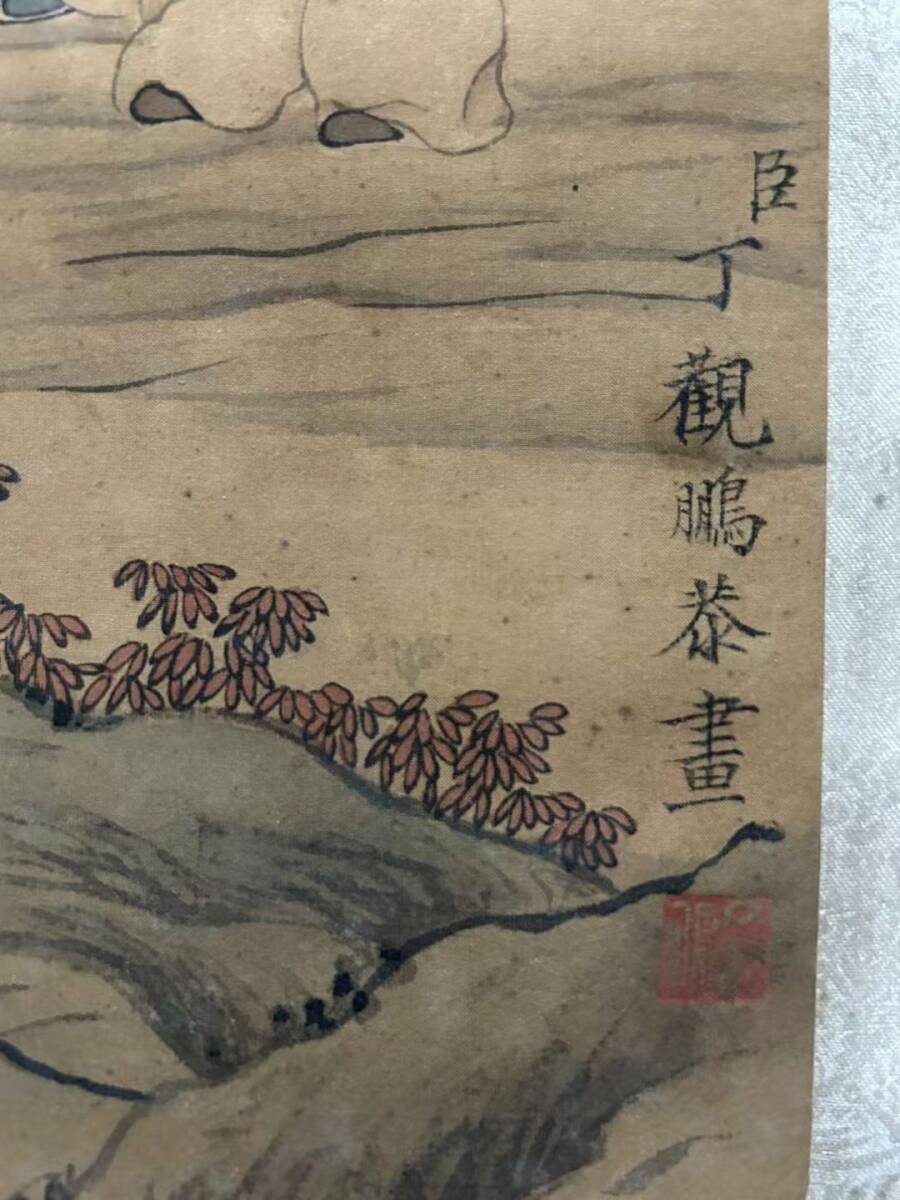 臣丁觀鵬恭畫